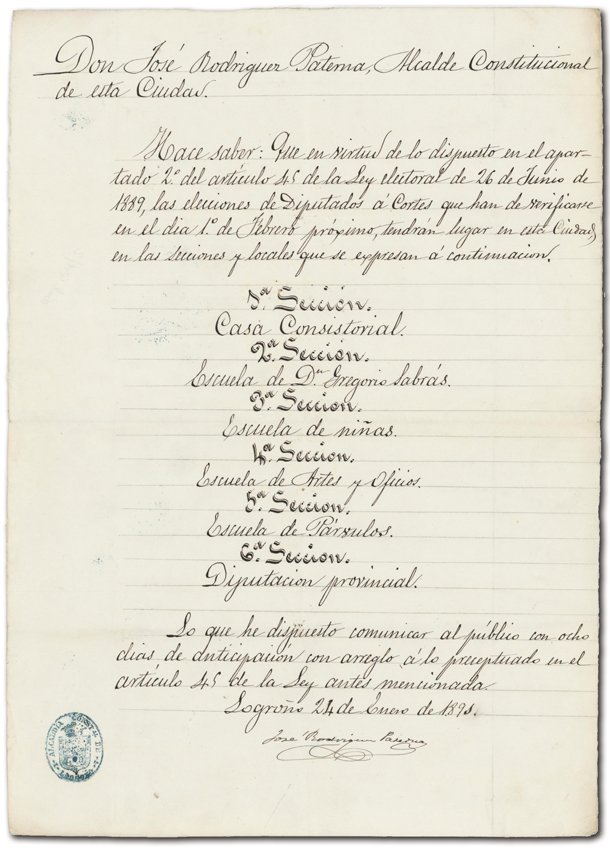 Don José Rodriguez Paterna, Alcalde Constitucional
de esta Ciudad.
Hace saber: Que en virtud de lo dispuesto en el apar-
tado 2º del artículo 45 de la Ley electoral de 26 de Junio de
1889, las elecciones de Diputados á Cortes que han de verificarse
en el dia 1º de Febrero próximo, tendrán lugar en esta Ciudad,
en las secciones y locales que se expresan á continuacion.
1ª Sección.
Casa Consistorial.
2ª Sección.
Escuela de Dn Gregorio Sabrás.
3ª Seccion.
Escuela de niñas.
4ª Seccion.
Escuela de Artes y Oficios.
5ª Seccion.
Escuela de Párvulos.
6ª Seccion.
Diputacion provincial.
Lo que he dispuesto comunicar al público con ocho
dias de anticipación con arreglo á lo preceptuado en el
artículo 45 de la Ley antes mencionada.
Logroño 24 de Enero de 1891.
José Rodriguez Paterna
ALCALDIA CONSTAL DE
LOGROÑO